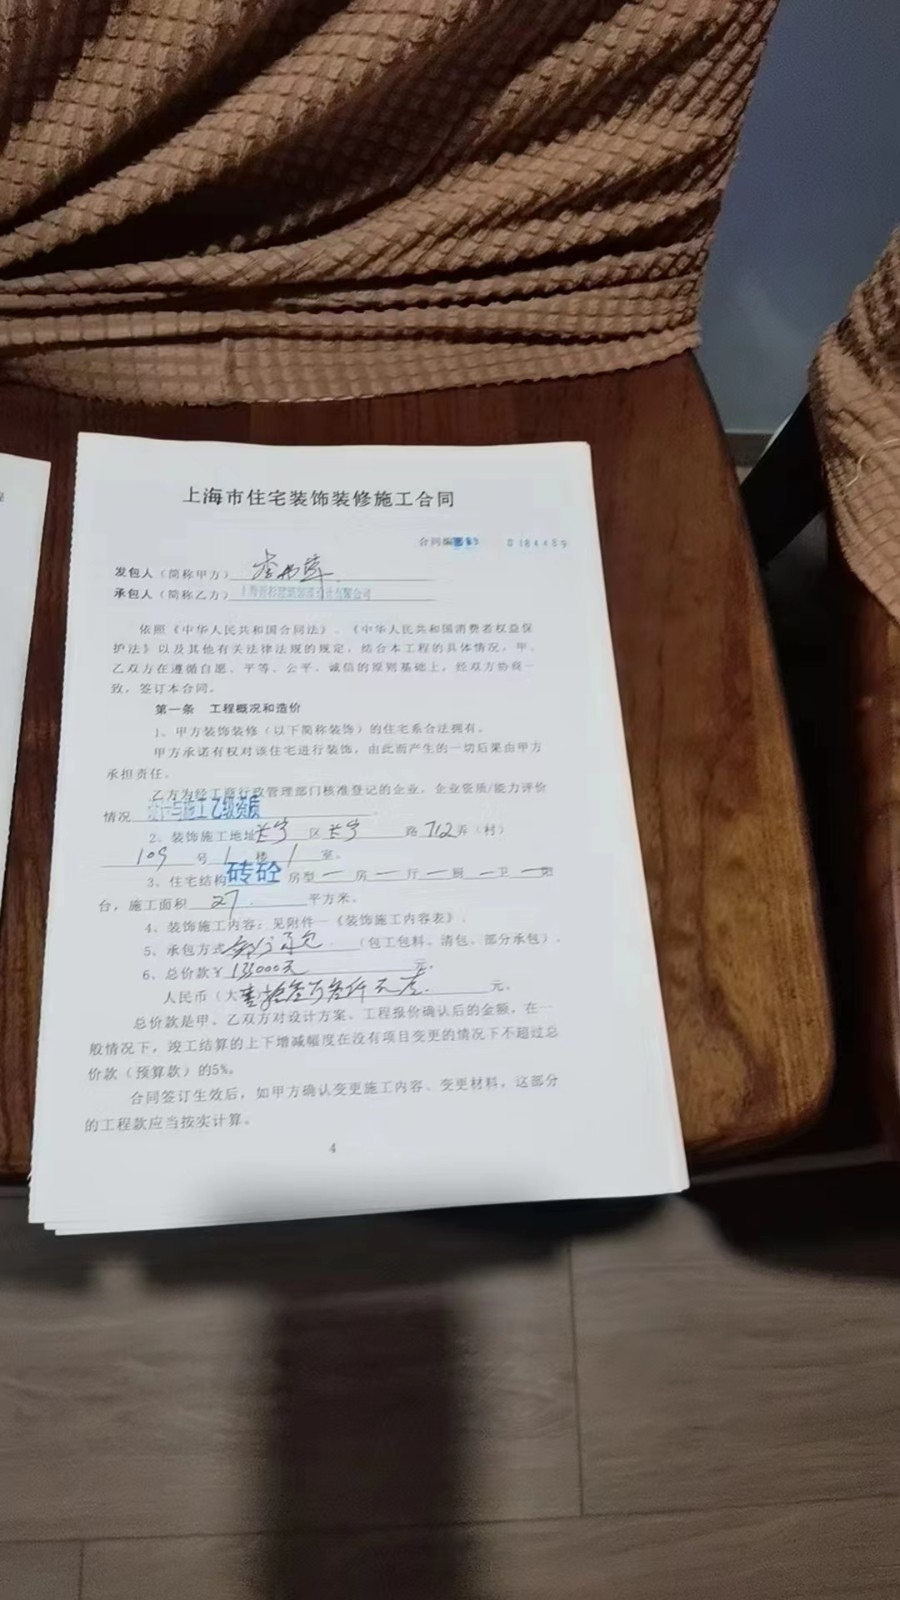 上海市住宅装饰装修施工合同
合同编 0184489
发包人（简称甲方）
承包人（简称乙方）
依照《中华人民共和国合同法》、《中华人民共和国消费者权益保
护法》以及其他有关法律法规的规定，结合本工程的具体情况，甲、
乙双方在遵循自愿、平等、公平、诚信的原则基础上，经双方协商一
致，签订本合同。
第一条 工程概况和造价
1、甲方装饰装修（以下简称装饰）的住宅系合法拥有。
甲方承诺有权对该住宅进行装饰，由此而产生的一切后果由甲方
承担责任。
乙方为经工商行政管理部门核准登记的企业，企业资质/能力评价
情况 设计与施工乙级资质
2、装饰施工地址 长宁 区 长宁 路 712 弄（村）
109 号 1 楼 1 室。
3、住宅结构 砖砼 房型 一 房 一 厅 一 厨 一 卫 一 阳
台，施工面积 27 平方米。
4、装饰施工内容：见附件一《装饰施工内容表》。
5、承包方式 部分承包 （包工包料、清包、部分承包）。
6、总价款￥ 133000元 元。
人民币（大 壹拾叁万叁仟元整 元。
总价款是甲、乙双方对设计方案、工程报价确认后的金额，在一
般情况下，竣工结算的上下增减幅度在没有项目变更的情况下不超过总
价款（预算款）的5%。
合同签订生效后，如甲方确认变更施工内容、变更材料，这部分
的工程款应当按实计算。
4